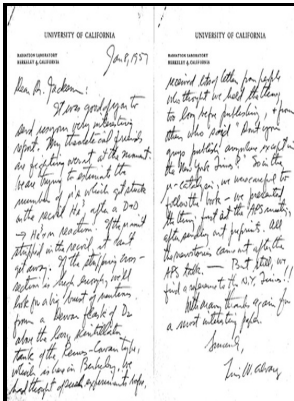 UNIVERSITY OF CALIFORNIA
RADIATION LABORATORY
BERKELEY 4, CALIFORNIA
Jan 8, 1957
Dear Dr. Jackson:
It was good of you to
send me your very interesting
report. Our theoretical friends
are
at the moment.
We are trying to estimate the
number of μ's which get stuck
in the recoil He3, after a D-D
→ He3 + n reaction. If the μ isn't
stripped in the recoil, it can't
get away. If the stripping cross-
section is high enough, we'll
look for a big burst of neutrons
from a Dewar flask of D2
alongside the large scintillator
tank of the Reines-Cowan type,
which is here in Berkeley. We
had thought of such experiments before,
UNIVERSITY OF CALIFORNIA
RADIATION LABORATORY
BERKELEY 4, CALIFORNIA
received letters from people
who thought we held the thing
too long before publishing, & from
others who said "Don't ever
publish anywhere except in
the New York Times". So in the
μ-catalysis, we were careful to
follow the book - we presented
the thing first at the APS meeting,
after sending out preprints. All
the newsmen came out after the
APS talk. — But still, we
find a reference to the N.Y. Times!!
With many thanks again for
a most interesting paper.
Sincerely,
Luis W. Alvarez